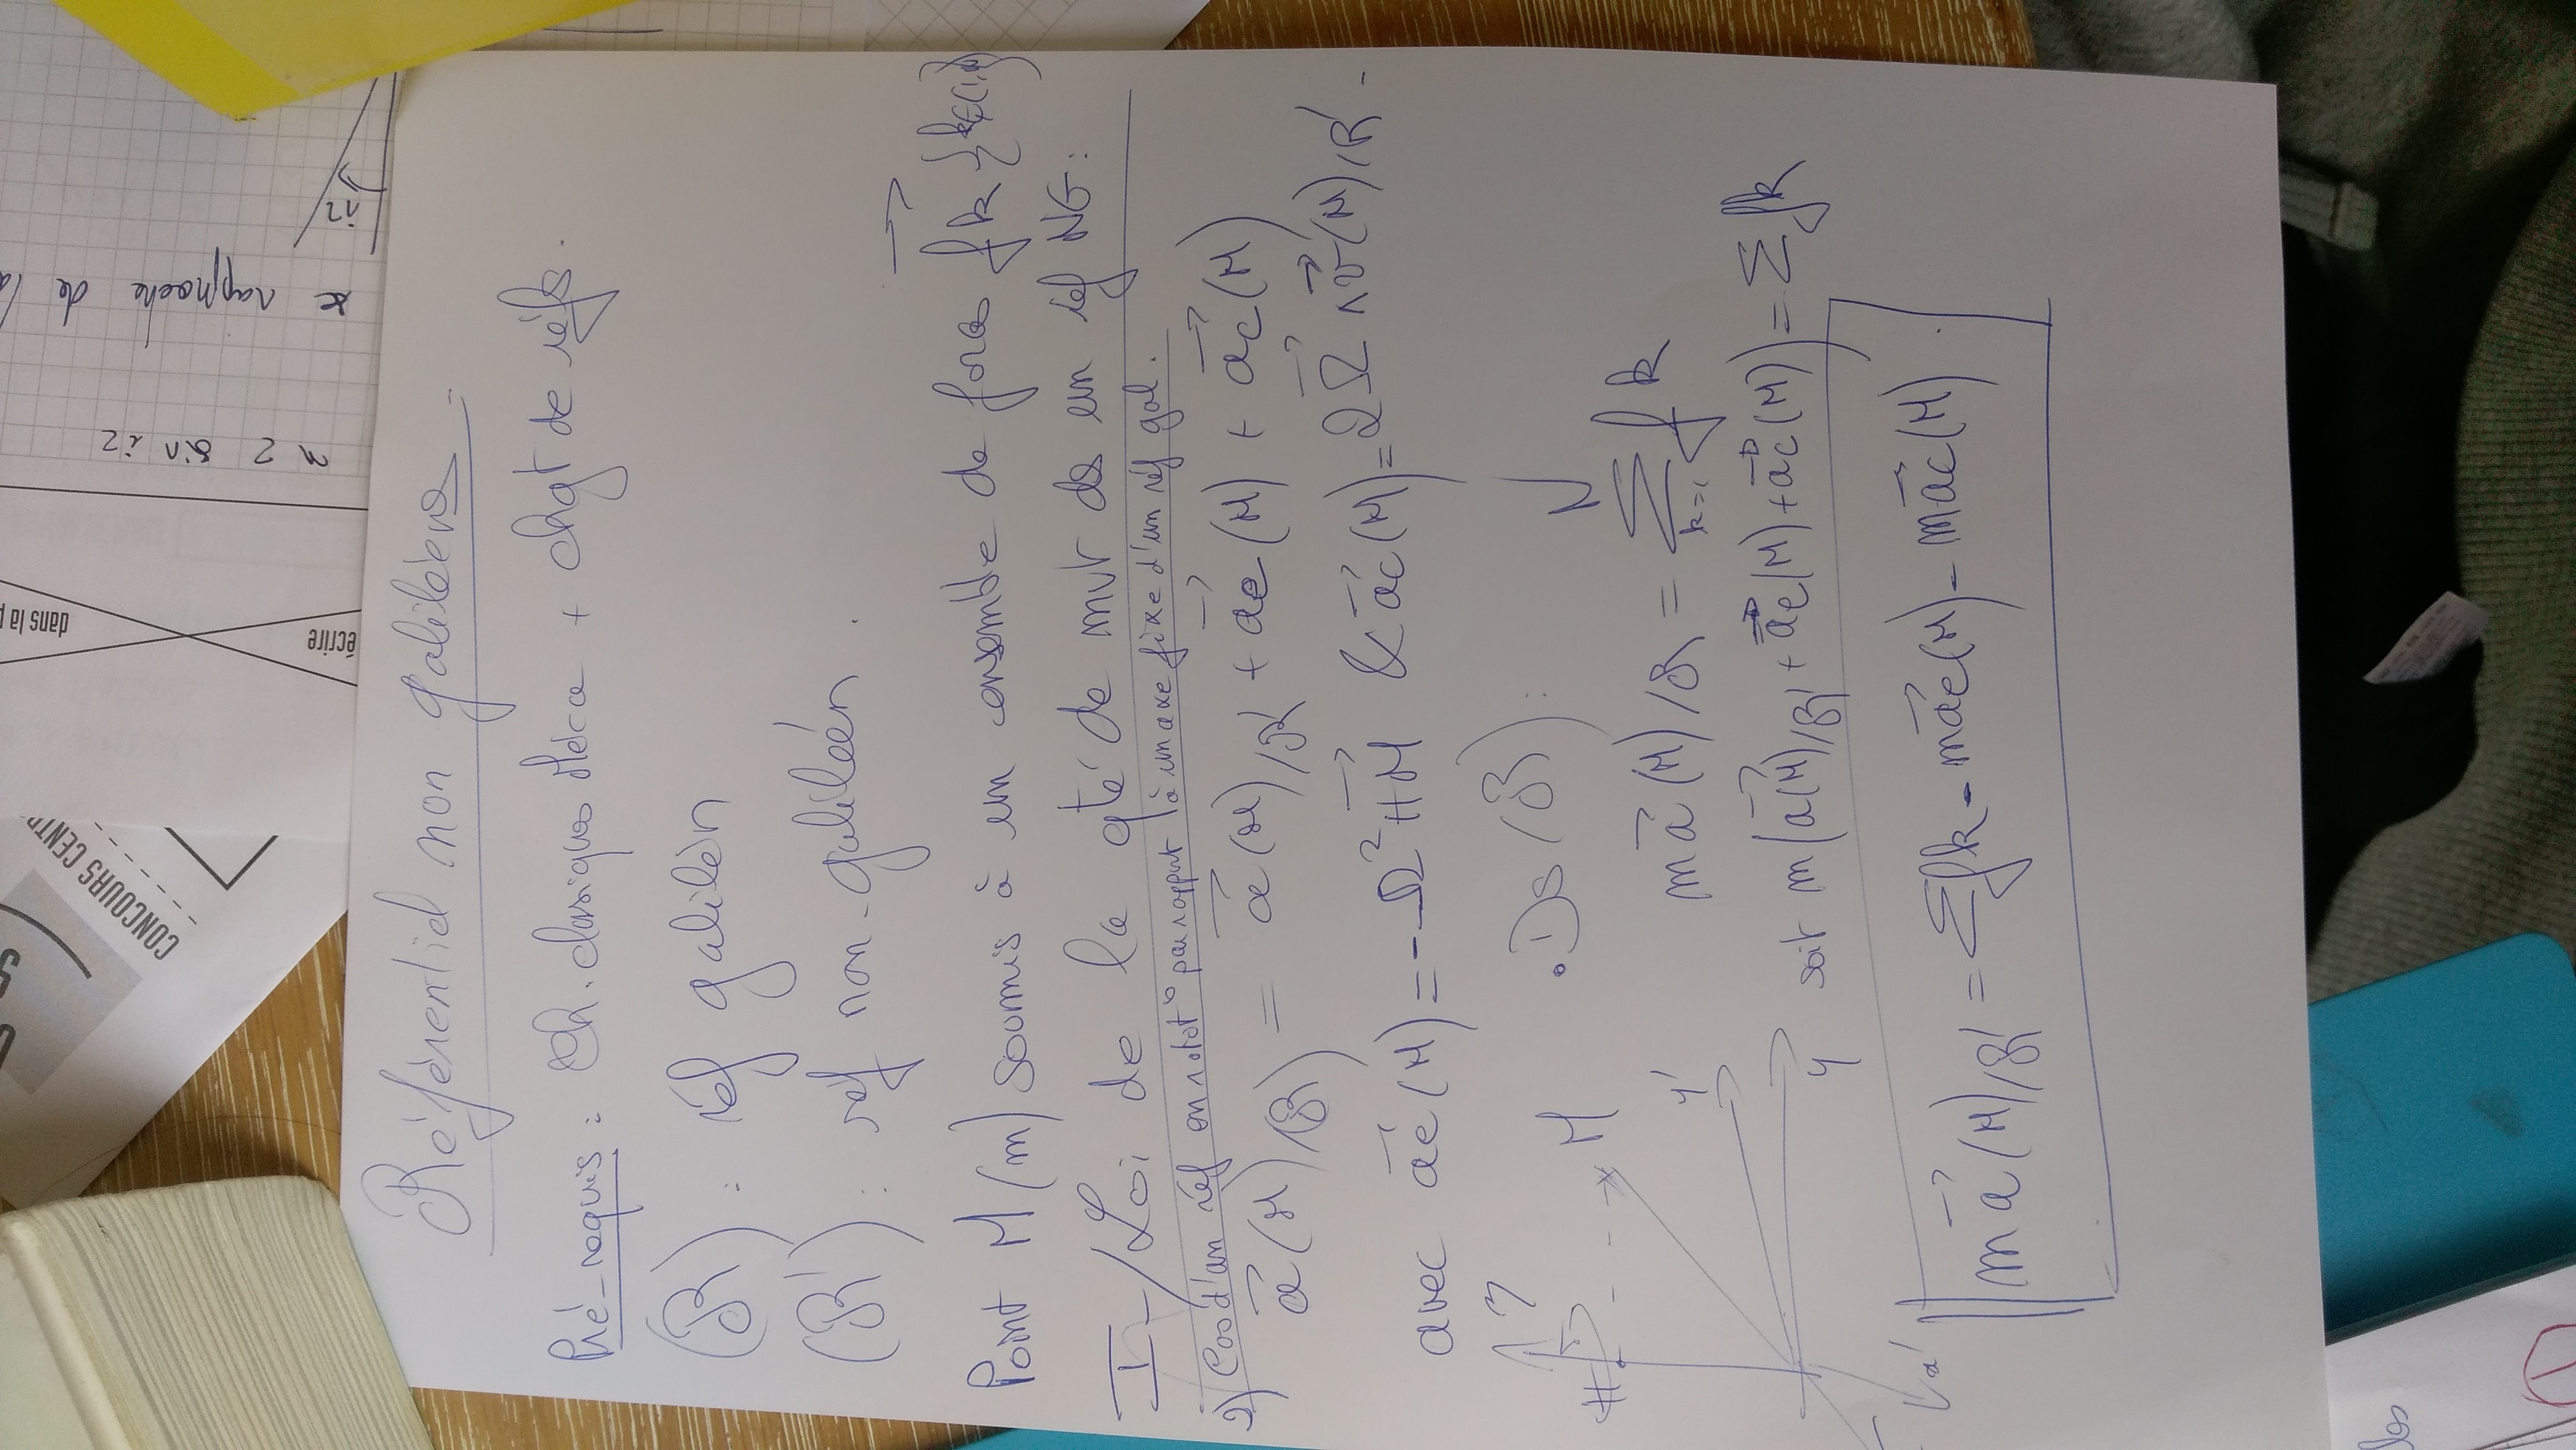 Référentiel non galiléens
Pré-requis : Ch. classique Méca + chgt de réfs.
(R) : réf galiléen
(R') : réf non-galiléen.
Point M(m) soumis à un ensemble de force {fk}
I-/ Loi de la qté de mvt ds un réf NG:
2) Cas d'un réf en rotat° par rapport à un axe fixe d'un réf gal.
a(M)/(R) = a(M)/R' + ae(M) + ac(M)
avec ae(M) = -Ω² HM & ac(M) = 2Ω ∧ v(M)/R'
• Ds (R) :
m a(M)/R = Σ fk
N
k=1
soit m(a(M)/R' + ae(M) + ac(M)) = Σ fk
m a(M)/R' = Σ fk - m ae(M) - m ac(M)
H
M
y'
y
x'
x rapproche de la
n2 sin i2
i2
écrire
dans la p
CONCOURS CENTR